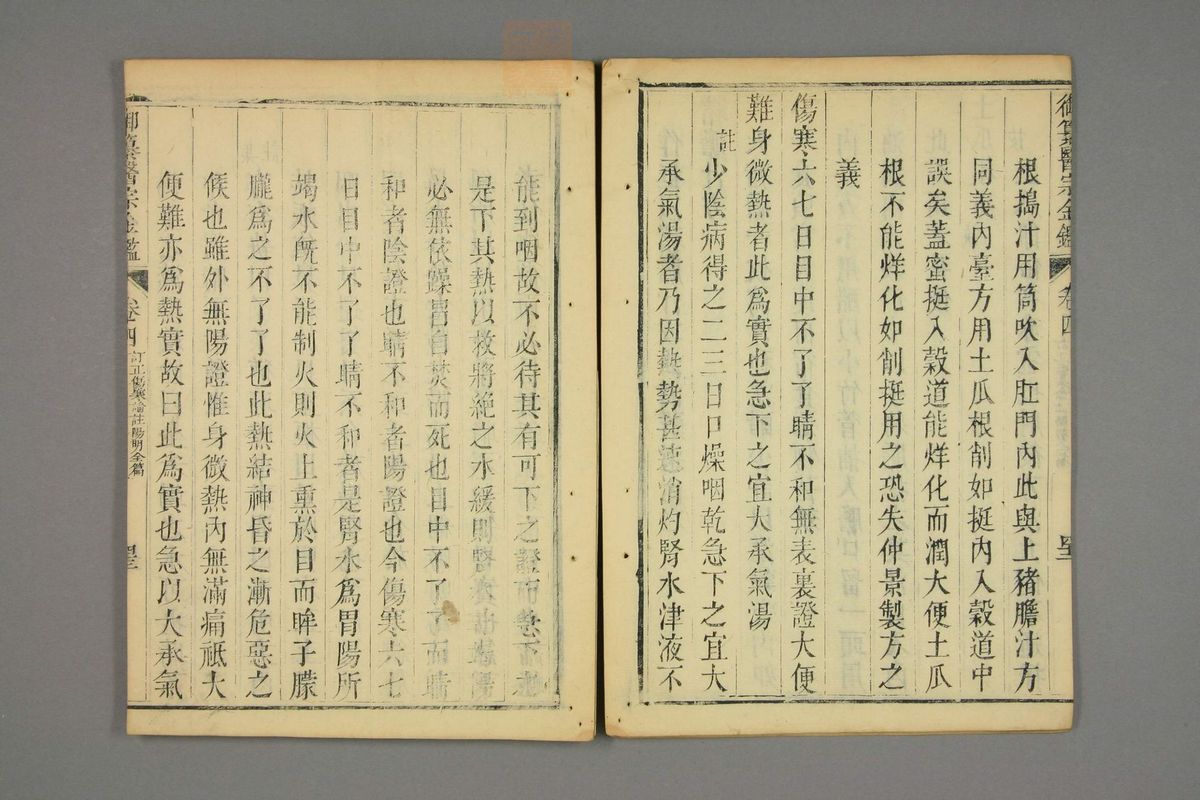 御纂醫宗金鑑 卷四
根搗汁用筒吹入肛門內此與上豬膽汁方
同義內臺方用土瓜根削如挺內入穀道中
誤矣蓋蜜挺入穀道能烊化而潤大便土瓜
根不能烊化如削挺用之恐失仲景製方之
義
傷寒六七日目中不了了睛不和無表裏證大便
難身微熱者此爲實也急下之宜大承氣湯
註少陰病得之二三日口燥咽乾急下之宜大
承氣湯者乃因熱勢甚速消灼腎水津液不
能到咽故不必待其有可下之證而急下之
是下其熱以救將絕之水緩則腎水
必無依躁胃自焚而死也目中不了了而睛
和者陰證也睛不和者陽證也今傷寒六七
日目中不了了睛不和者是腎水爲胃陽所
竭水旣不能制火則火上熏於目而眸子朦
朧爲之不了了也此熱結神昏之漸危惡之
候也雖外無陽證惟身微熱內無滿痛祗大
便難亦爲熱實故曰此爲實也急以大承氣
御纂醫宗金鑑 卷四 訂正傷寒論註陽明全篇